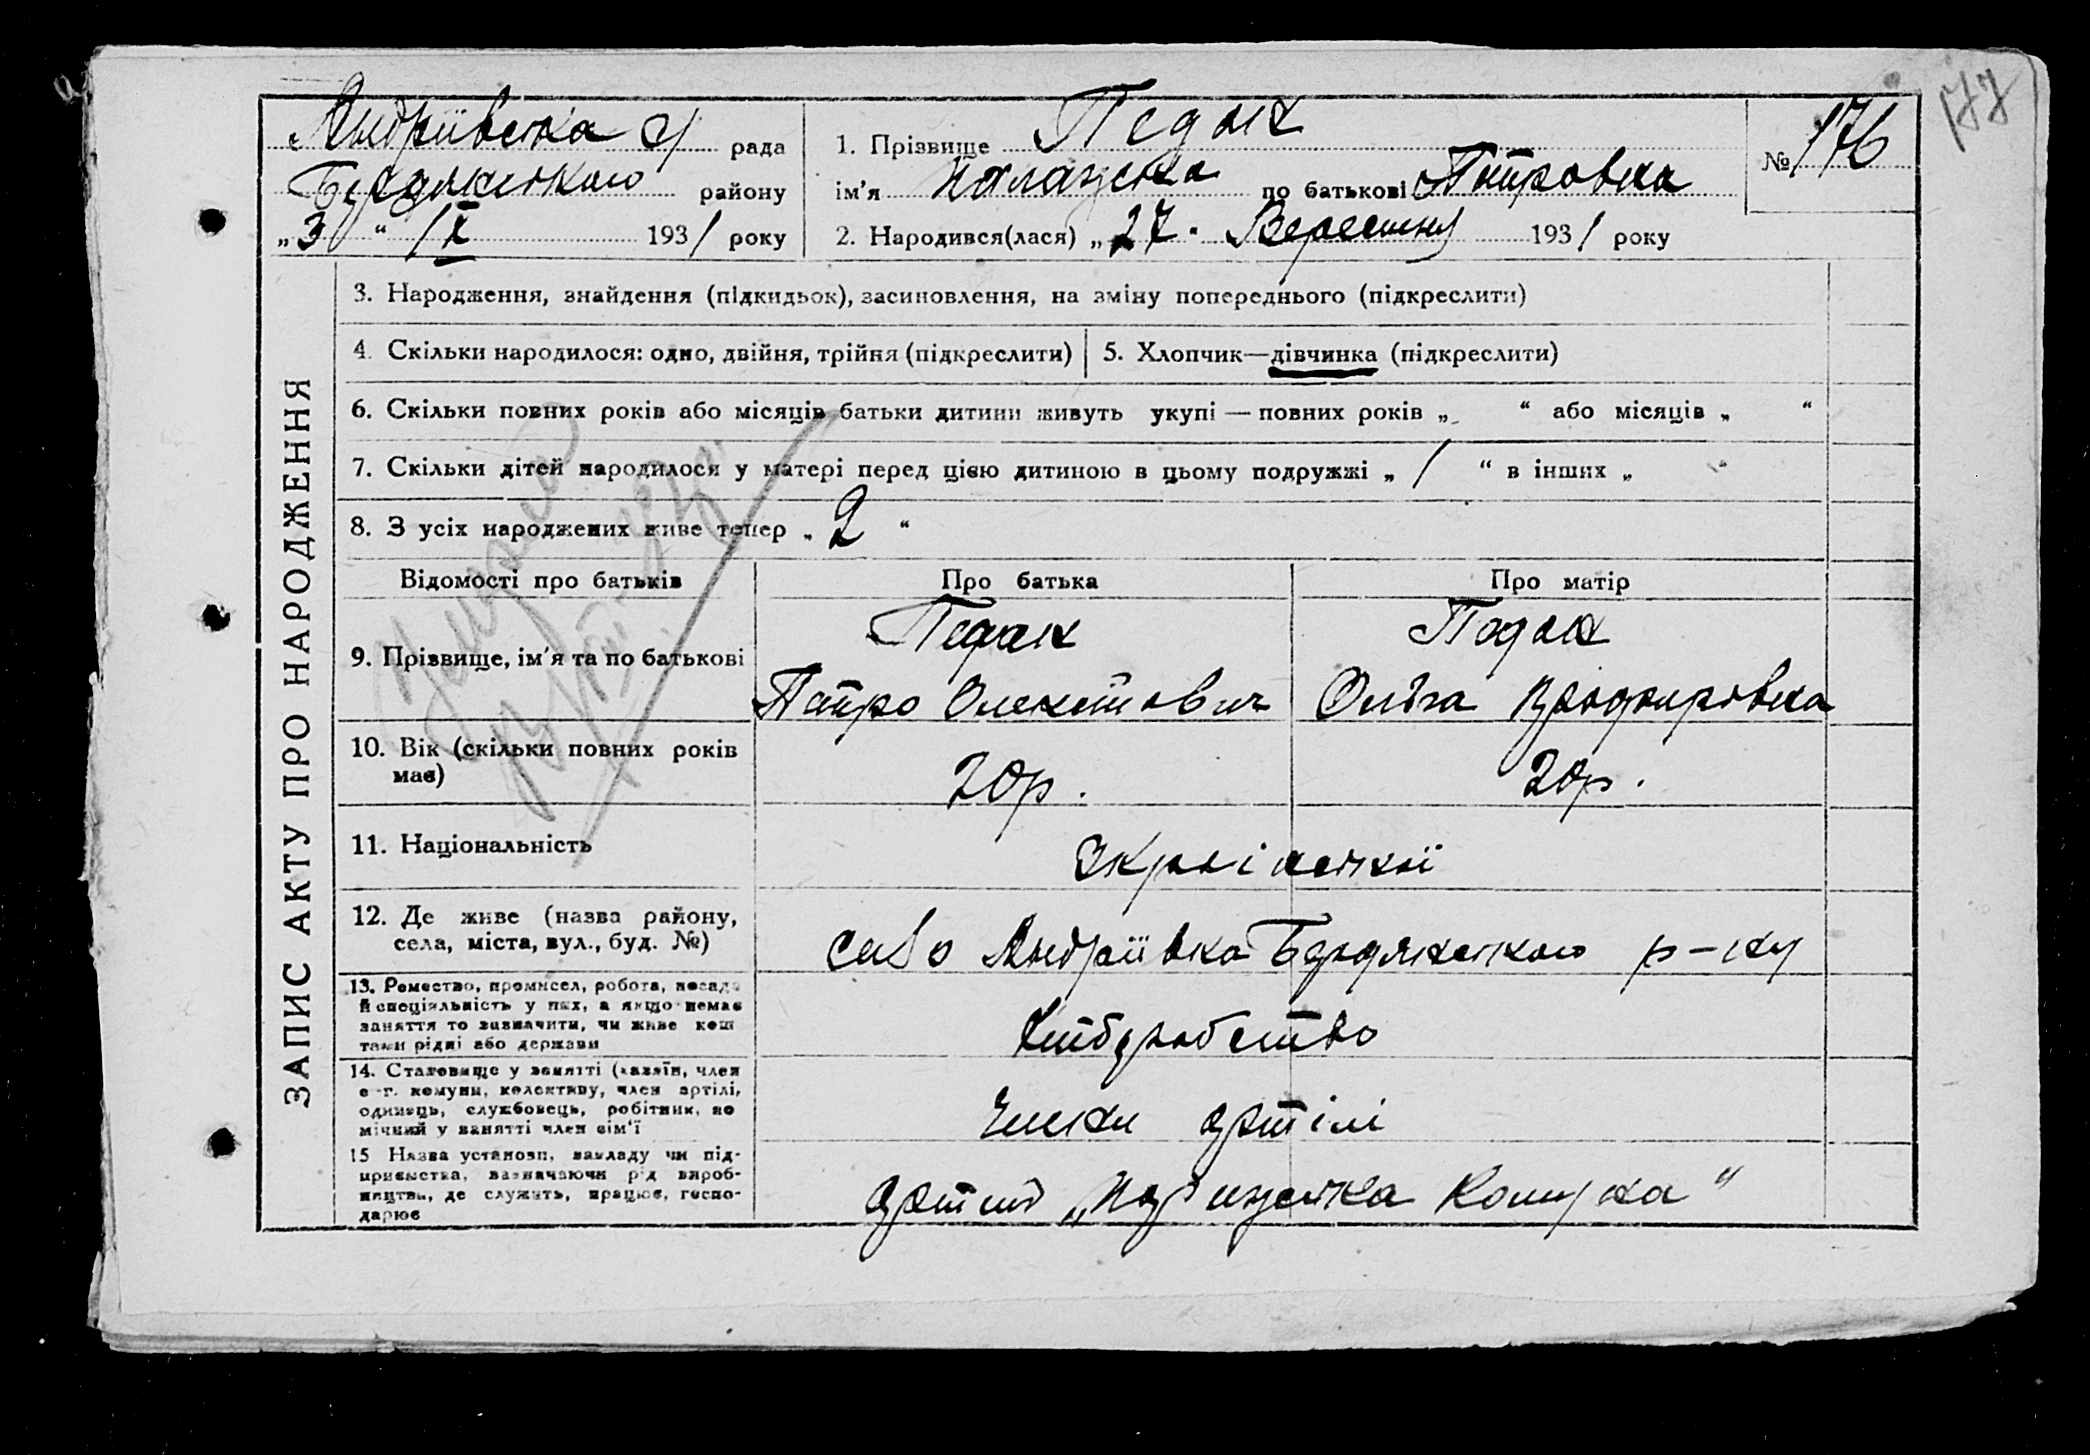 177
Андріївська с/ рада
Бердянського району
„3" /X 1931 року
1. Прізвище Педак
ім'я Палажка по батькові Петровна
№ 176
2. Народився(лася) „27. Вересня 1931 року
ЗАПИС АКТУ ПРО НАРОДЖЕННЯ
3. Народження, знайдення (підкидьок), засиновлення, на зміну попереднього (підкреслити)
4. Скільки народилося: одно, двійня, трійня (підкреслити)
5. Хлопчик—дівчинка (підкреслити)
6. Скільки повних років або місяців батьки дитини живуть укупі — повних років „ " або місяців „ "
7. Скільки дітей народилося у матері перед цією дитиною в цьому подружжі „ 1 " в інших „ "
8. З усіх народжених живе тепер „ 2 "
Відомості про батьків
Про батька
Про матір
9. Прізвище, ім'я та по батькові
Педак
Петро Олексійович
Педак
Ольга
10. Вік (скільки повних років
має)
20р.
20р.
11. Національність
Українській
12. Де живе (назва району,
села, міста, вул., буд. №)
село Андріївка Бердянського р-ну
13. Ремество, промисел, робота, посада
й спеціяльність у них, а якщо немає
заняття то зазначити, чи живе кош
тами рідні або держави
хліборобство
14. Становище у занятті (хазяїн, член
с.-г. комуни, колективу, член артілі,
одинець, службовець, робітник, по
мічний у занятті член сім'ї
Члени артілі
15 Назва установи, закладу чи під-
приємства, зазначаючи рід вироб-
ництва, де служить, працює, госпо-
дарює
артіль „Паризька Комуна"